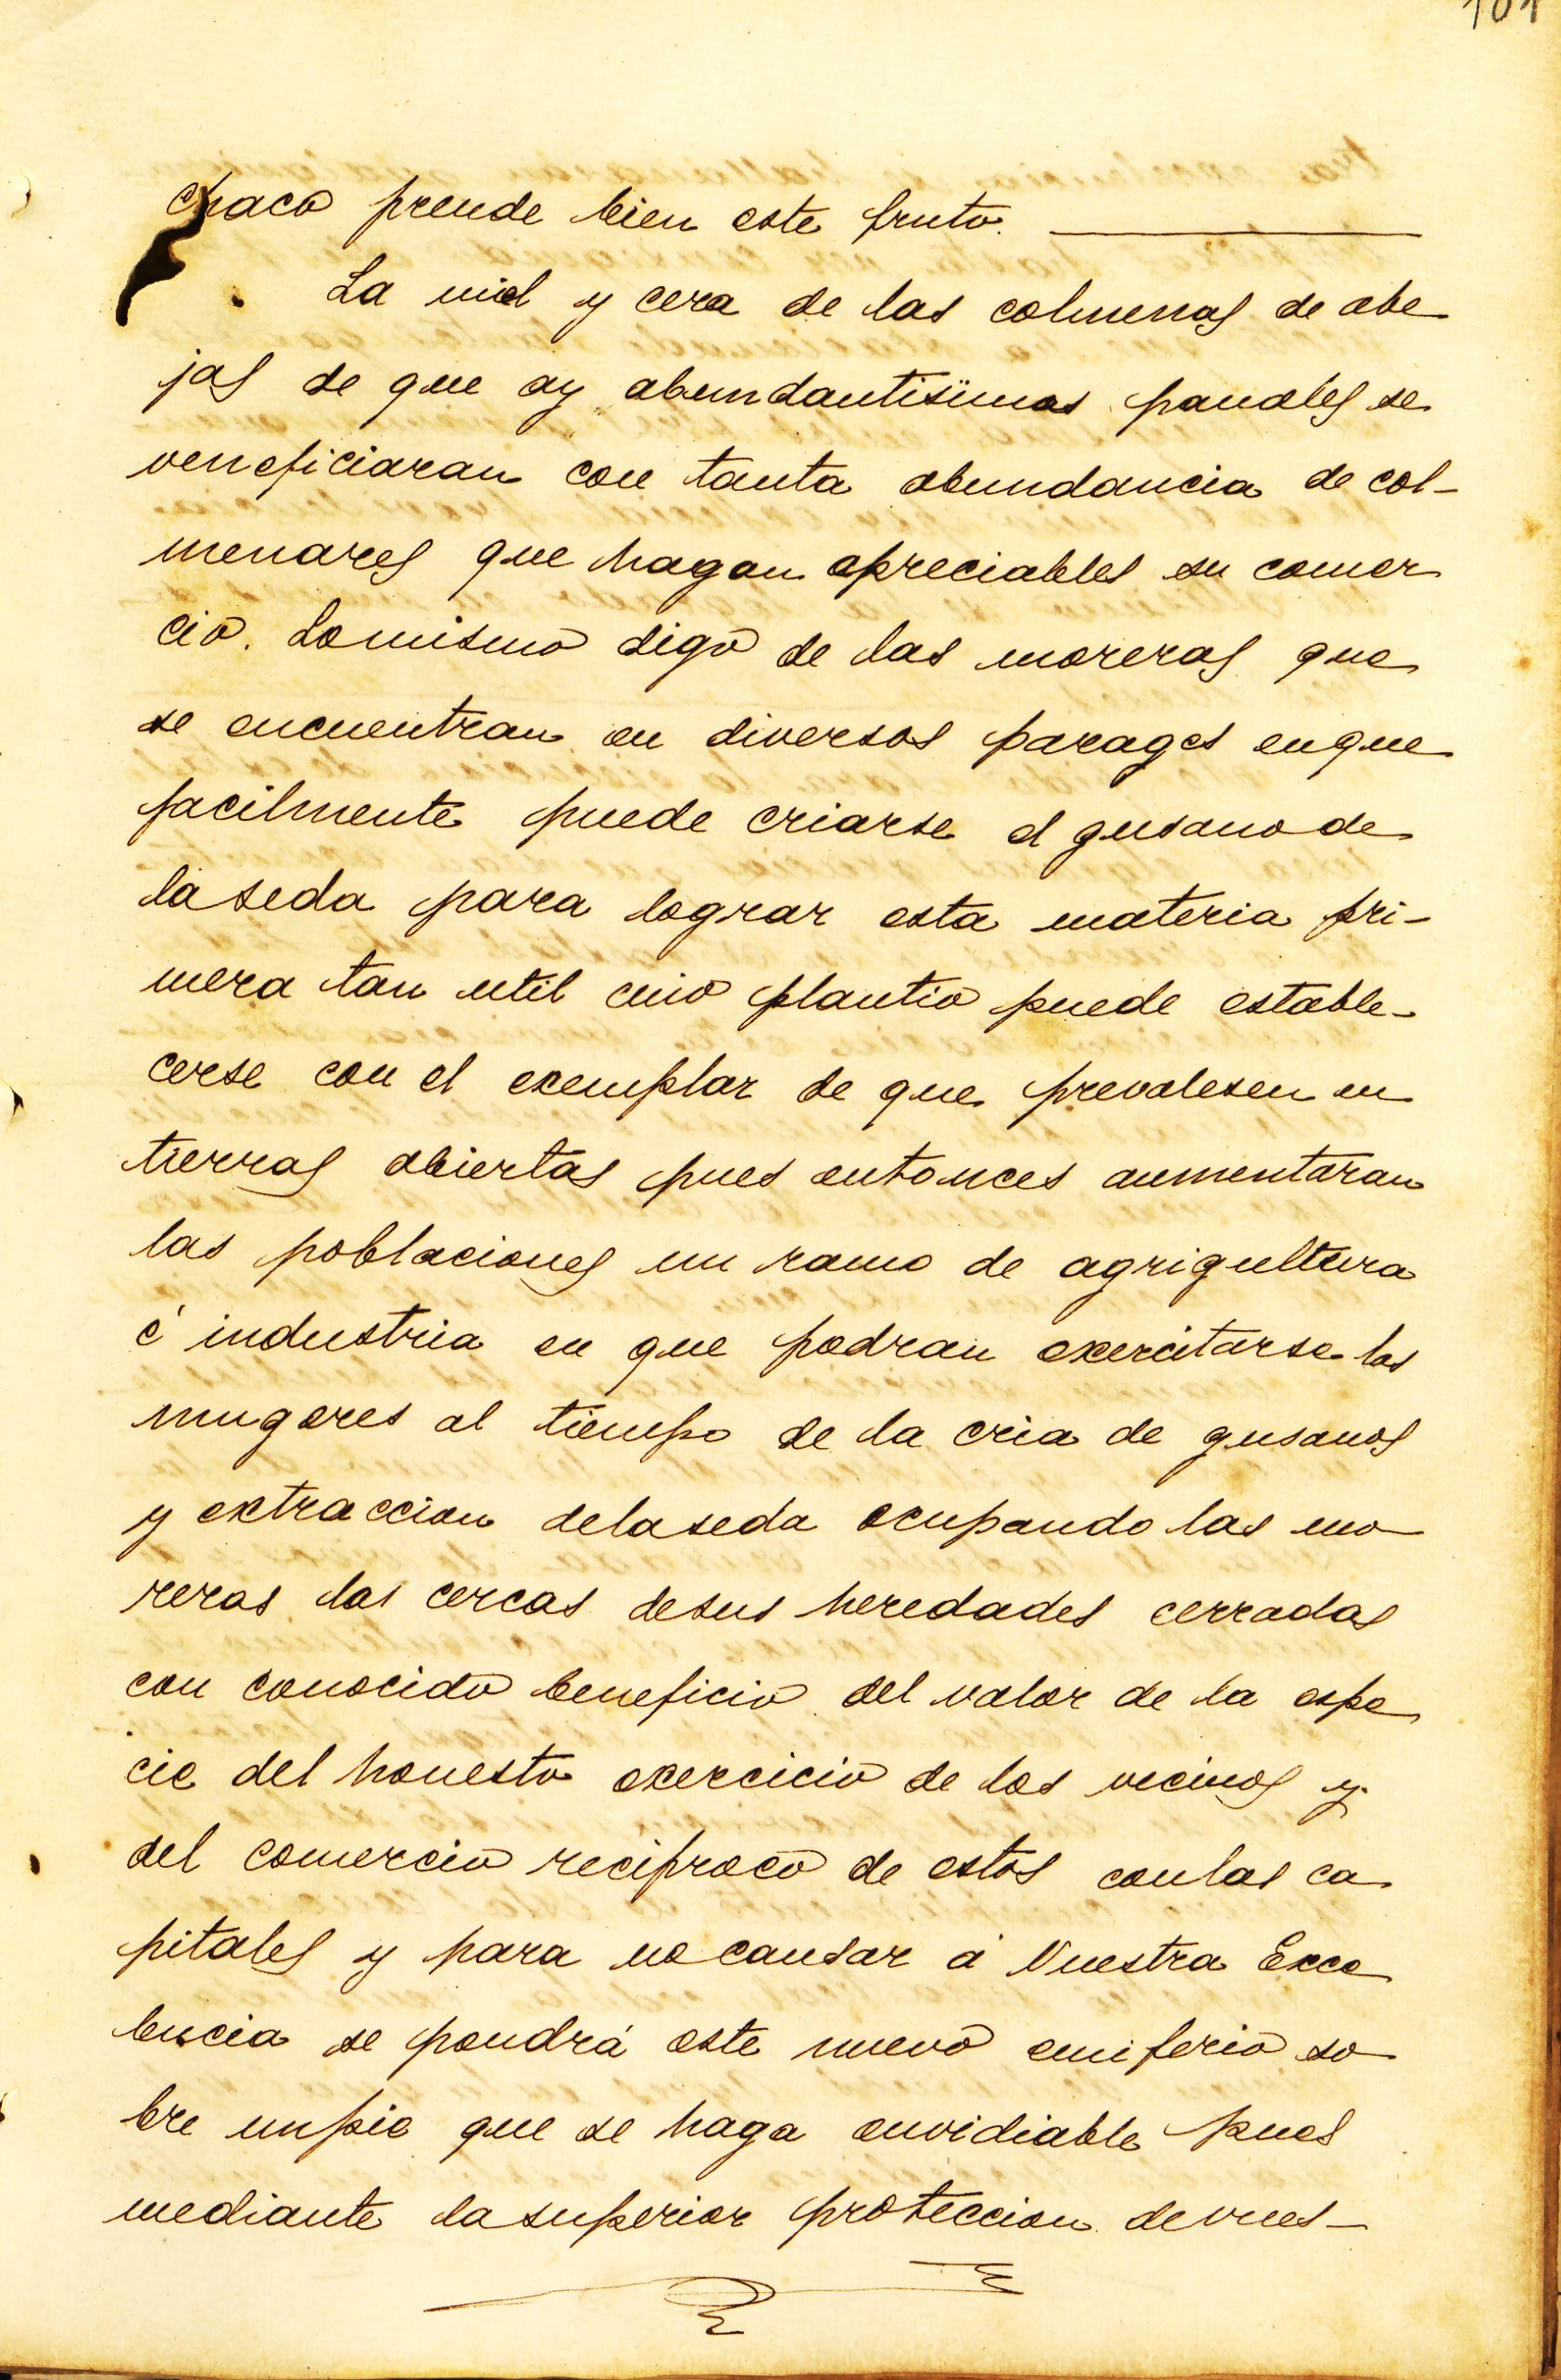 chaco prende bien este fruto.
La miel y cera de las colmenas de abe
jas de que ay abundantisimos panales se
veneficiaran con tanta abundancia de col-
menares que hagan apreciables su comer
cio. Lomismo digo de las moreras que
se encuentran en diversos parages enque
facilmente puede criarse el gusano de
laseda para lograr esta materia pri-
mera tan util cuio plantio puede estable-
cerse con el exemplar de que prevalesen en
tierras abiertas pues entonces aumentaran
las poblaciones un ramo de agrigultura
é industria en que podran exercitarse las
mugeres al tiempo de la cria de gusanos
y extraccion delaseda ocupando las mo
reras las cercas desus heredades cerradas
con conocido beneficio del valor de la espe
cie del honesto exercicio de los vecinos y
del comercio reciproco de estos conlas ca
pitales y para no cansar á Vuestra Exce
lencia se pondrá este nuevo emiferio so
bre unpie que se haga envidiable pues
mediante lasuperior proteccion devues-